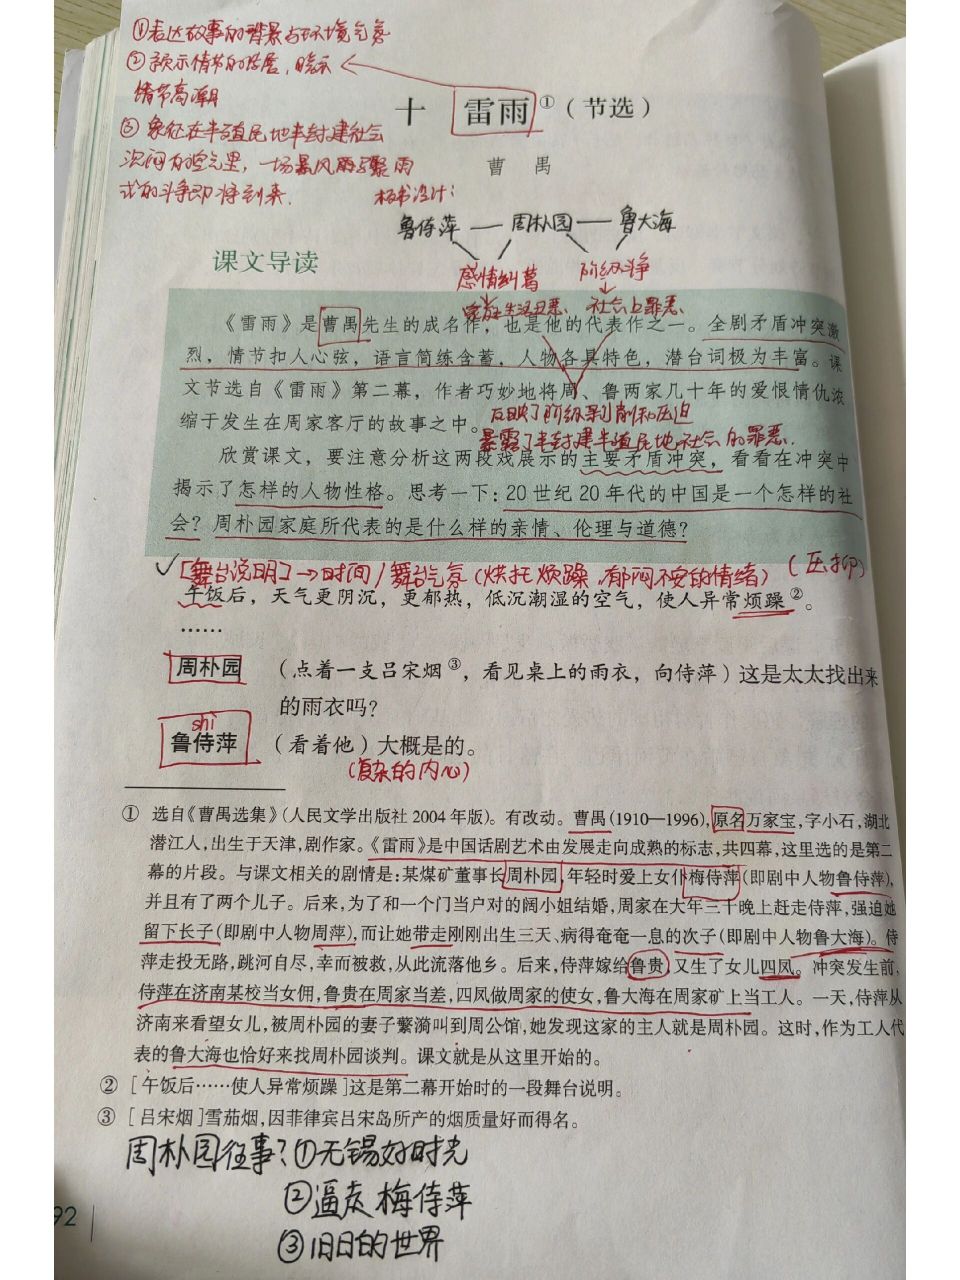 ①表达故事的背景与环境气氛
②预示情节的发展，暗示
情节高潮
③象征在半殖民地半封建社会
沉闷的空气里，一场暴风雨骤雨
式的斗争即将到来.
板书设计：
十 雷雨①（节选）
曹 禺
鲁侍萍 — 周朴园 — 鲁大海
感情纠葛 阶级斗争
家庭生活丑恶. 社会上罪恶.
反映了阶级剥削和压迫
暴露了半封建半殖民地社会的罪恶.
课文导读
《雷雨》是曹禺先生的成名作，也是他的代表作之一。全剧矛盾冲突激
烈，情节扣人心弦，语言简练含蓄，人物各具特色，潜台词极为丰富。课
文节选自《雷雨》第二幕，作者巧妙地将周、鲁两家几十年的爱恨情仇浓
缩于发生在周家客厅的故事之中。
欣赏课文，要注意分析这两段戏展示的主要矛盾冲突，看看在冲突中
揭示了怎样的人物性格。思考一下：20世纪20年代的中国是一个怎样的社
会？周朴园家庭所代表的是什么样的亲情、伦理与道德？
✓[舞台说明]→时间/舞台气氛（烘托烦躁、郁闷不安的情绪）（压抑）
午饭后，天气更阴沉，更郁热，低沉潮湿的空气，使人异常烦躁②。
……
周朴园 （点着一支吕宋烟③，看见桌上的雨衣，向侍萍）这是太太找出来
的雨衣吗？
shì
鲁侍萍 （看着他）大概是的。
（复杂的内心）
① 选自《曹禺选集》（人民文学出版社2004年版）。有改动。曹禺（1910—1996），原名万家宝，字小石，湖北
潜江人，出生于天津，剧作家。《雷雨》是中国话剧艺术由发展走向成熟的标志，共四幕，这里选的是第二
幕的片段。与课文相关的剧情是：某煤矿董事长周朴园，年轻时爱上女仆梅侍萍（即剧中人物鲁侍萍），
并且有了两个儿子。后来，为了和一个门当户对的阔小姐结婚，周家在大年三十晚上赶走侍萍，强迫她
留下长子（即剧中人物周萍），而让她带走刚刚出生三天、病得奄奄一息的次子（即剧中人物鲁大海）。侍
萍走投无路，跳河自尽，幸而被救，从此流落他乡。后来，侍萍嫁给鲁贵，又生了女儿四凤。冲突发生前，
侍萍在济南某校当女佣，鲁贵在周家当差，四凤做周家的使女，鲁大海在周家矿上当工人。一天，侍萍从
济南来看望女儿，被周朴园的妻子蘩漪叫到周公馆，她发现这家的主人就是周朴园。这时，作为工人代
表的鲁大海也恰好来找周朴园谈判。课文就是从这里开始的。
② ［午饭后……使人异常烦躁］这是第二幕开始时的一段舞台说明。
③ ［吕宋烟］雪茄烟，因菲律宾吕宋岛所产的烟质量好而得名。
周朴园往事？①无锡好时光
②逼走梅侍萍
③旧日的世界
92